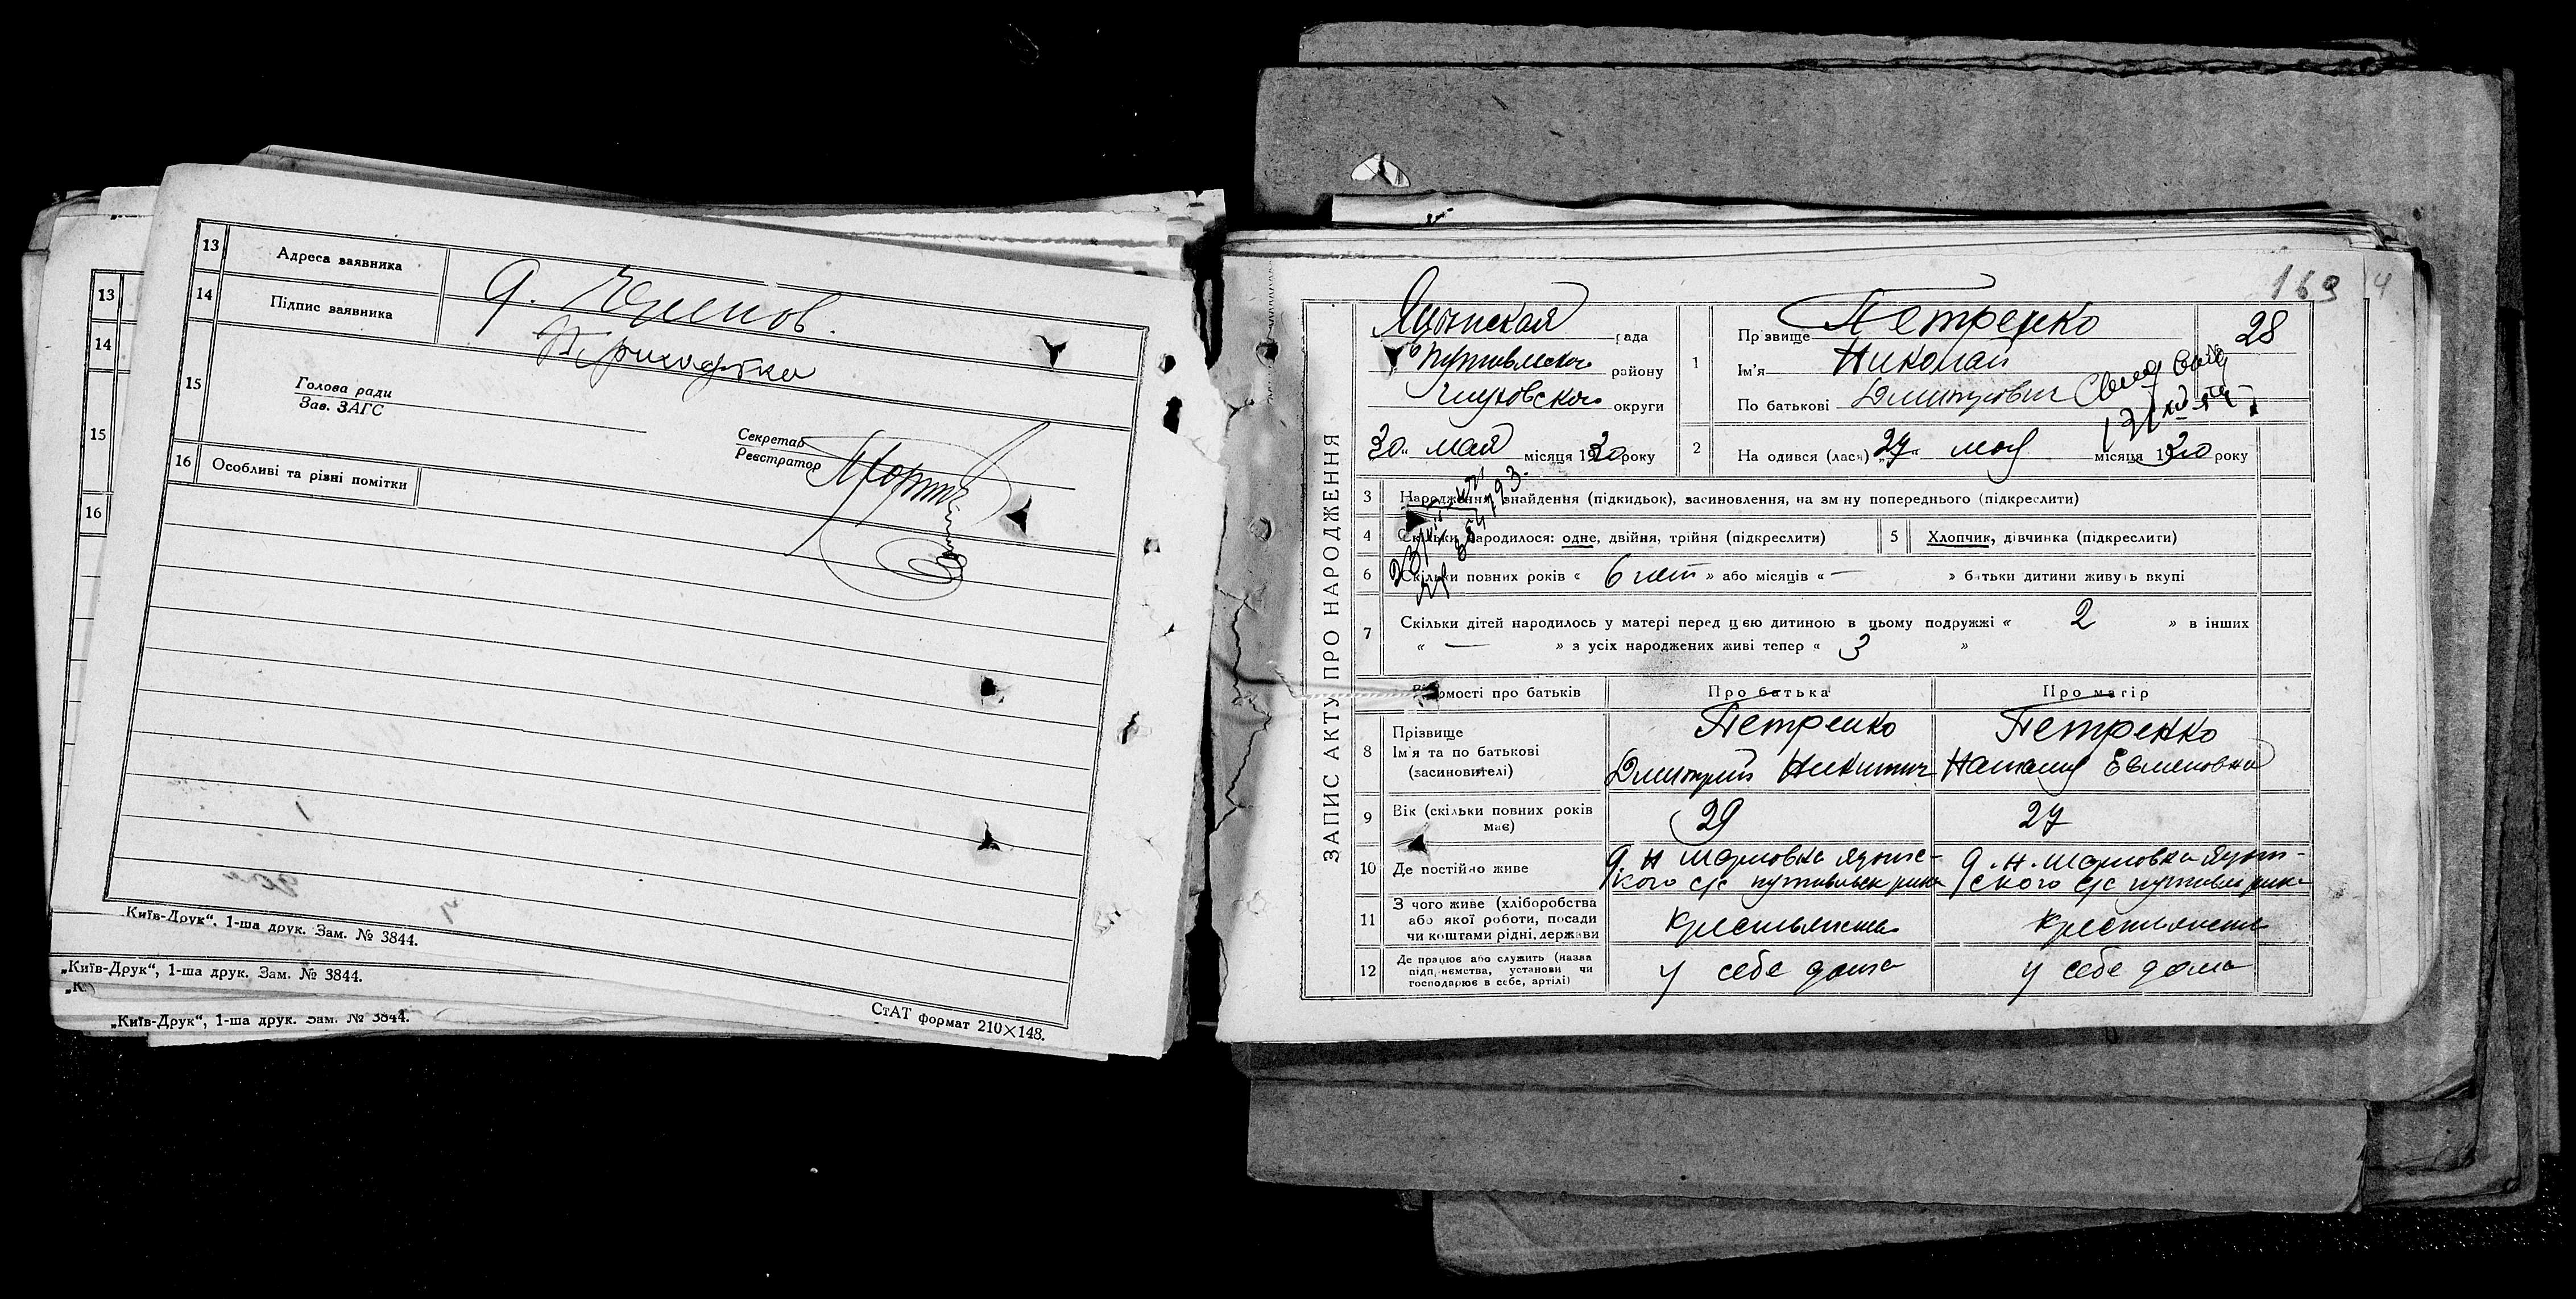 13 Адреса заявника д. Юрьенов.
14 Підпис заявника
15 Голова ради
Зав. ЗАГС
Секретар
Реєстратор
16 Особливі та різні помітки
„Київ-Друк“, 1-ша друк. Зам. № 3844.
СтАТ формат 210×148.
13
14
15
16
„Київ-Друк“, 1-ша друк. Зам. № 3844.
„К
„Київ-Друк“, 1-ша друк. Зам. № 3844.
163
4
ЗАПИС АКТУ ПРО НАРОДЖЕННЯ
Яцынская рада
Путивльского району
Глуховского округи
30 „ мая місяця 1930 року
1 Прізвище Петренко
28
Ім'я Николай
По батькові Дмитриевич
2 На одився (лася) „27“ мая місяця 1930 року
3 Народження, знайдення (підкидьок), засиновлення, на зміну попереднього (підкреслити)
4 Скільки народилося: одне, двійня, трійня (підкреслити)
5 Хлопчик, дівчинка (підкреслити)
6 Скільки повних років « 6 лет » або місяців « — » батьки дитини живуть вкупі
7 Скільки дітей народилось у матері перед цією дитиною в цьому подружжі « 2 » в інших
« — » з усіх народжених живі тепер « 3 »
Відомості про батьків Про батька Про матір
8 Прізвище Петренко Петренко
Ім'я та по батькові
(засиновителі) Дмитрий Никитич Наталия Евменовна
9 Вік (скільки повних років має) 29 27
10 Де постійно живе
11 З чого живе (хліборобства
або якої роботи, посади
чи коштами рідні, держави
Крестьянства Крестьянства
12 Де працює або служить (назва
підприємства, установи чи
господарює в себе, артілі)
у себе дома у себе дома